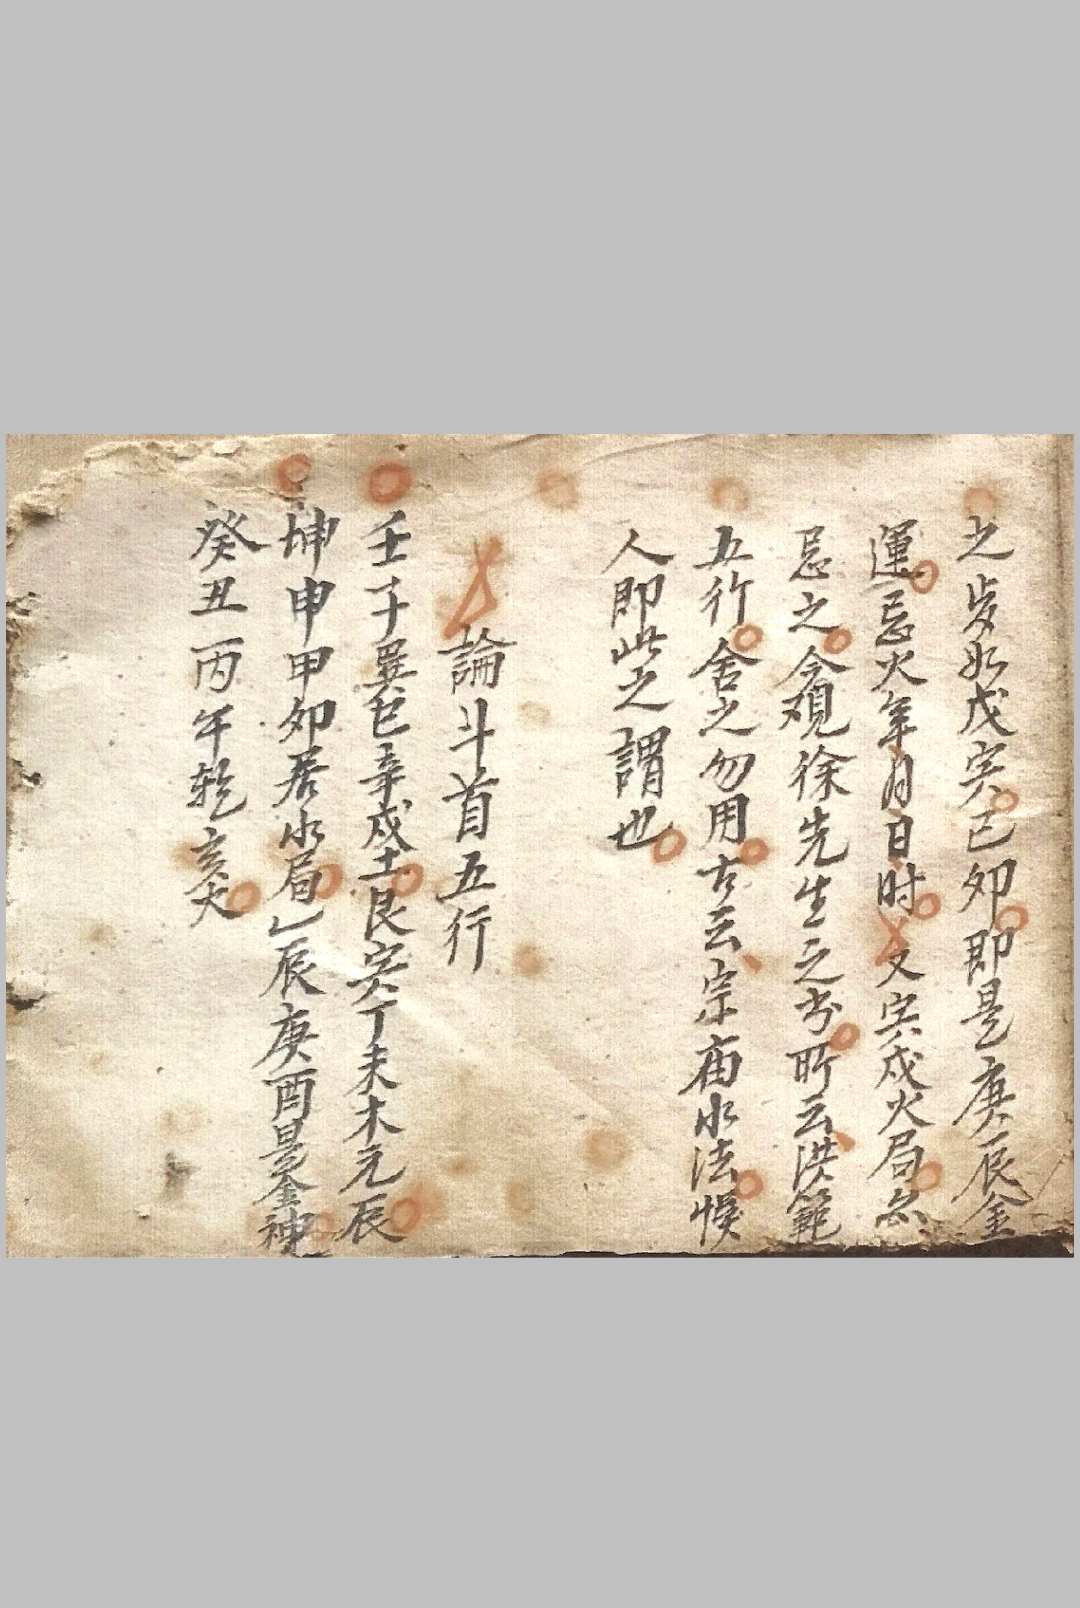 之岁如戊寅己卯即是庚辰金
運忌火年月日时又寅戌火局亦
忌之今观徐先生之书所云洪範
五行舍之勿用古云宗庙水法悞
人即此之謂也
論斗首五行
壬子巽巳辛戌土艮寅丁未木元辰
坤申甲卯居水局乙辰庚酉是金神
癸丑丙午乾亥火